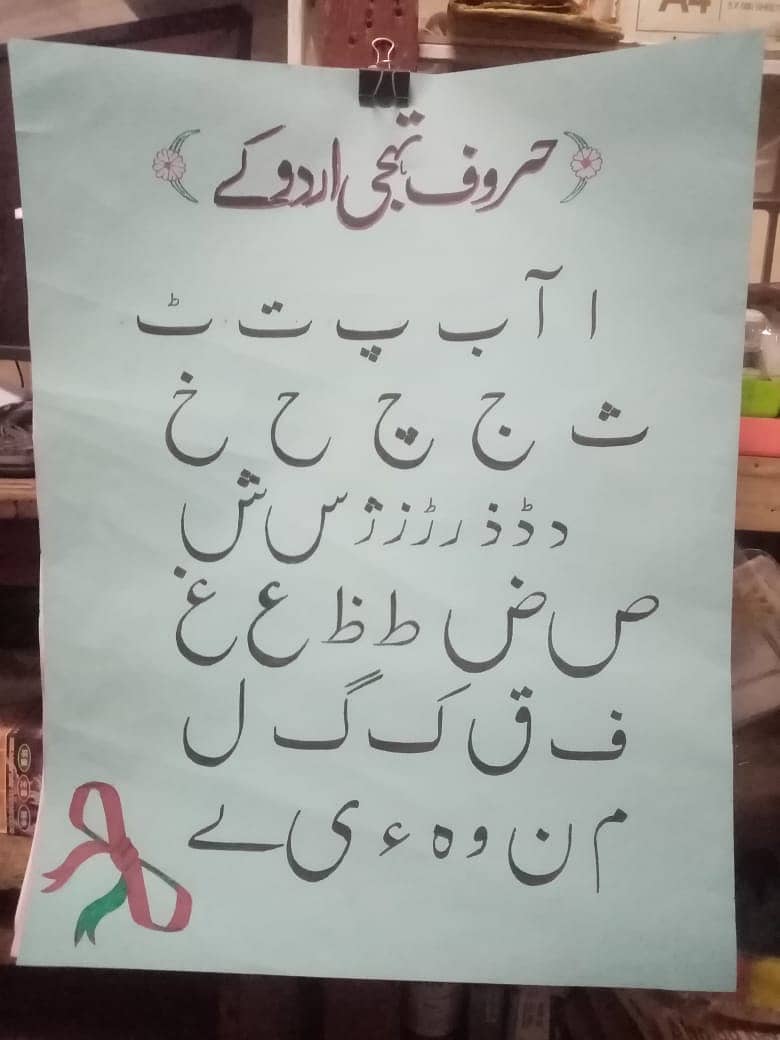 A4
حروف تہجی اردو کے
ا آ ب پ ت ٹ
ث ج چ ح خ
د ڈ ذ ر ڑ ز ژ س ش
ص ض ط ظ ع غ
ف ق ک گ ل
م ن و ہ ء ی ے